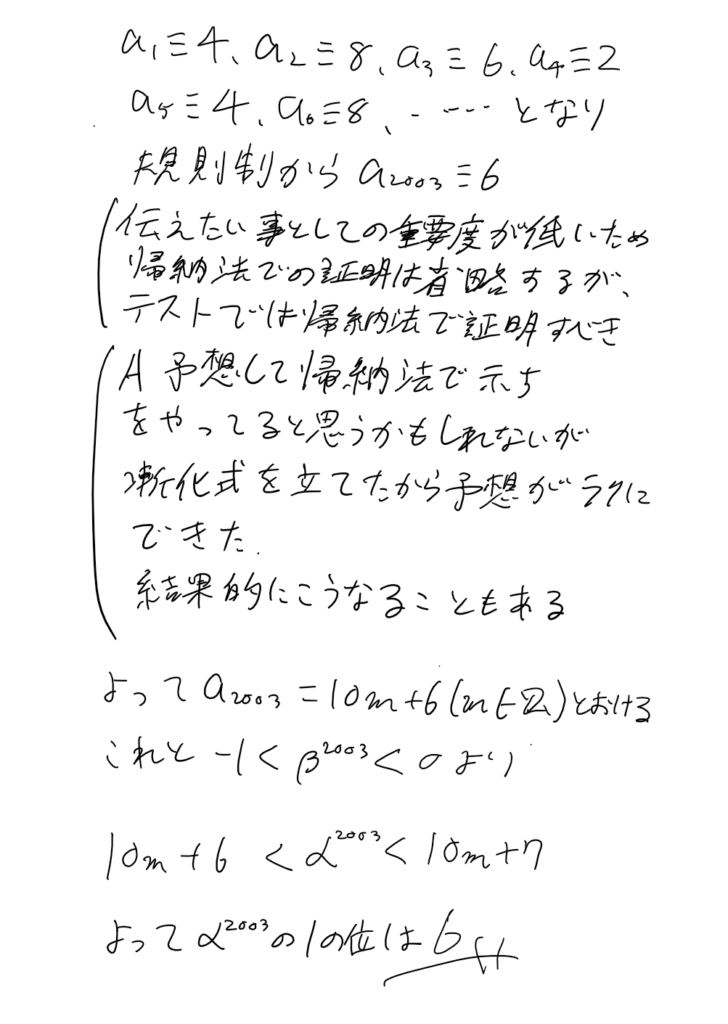 a₁≡4、a₂≡8、a₃≡6、a₄≡2
a₅≡4、a₆≡8、……となり
規則制から a₂₀₀₃≡6
伝えたい事としての重要度が低いため
帰納法での証明は省略するが、
テストでは帰納法で証明すべき
A 予想して帰納法で示ち
をやってると思うかもしれないが
漸化式を立てたから予想がラクに
できた.
結果的にこうなることもある
よって a₂₀₀₃=10m+6(m∈ℤ)とおける
これと -1<β²⁰⁰³<0 より
10m+6 <α²⁰⁰³<10m+7
よって α²⁰⁰³の1の位は 6